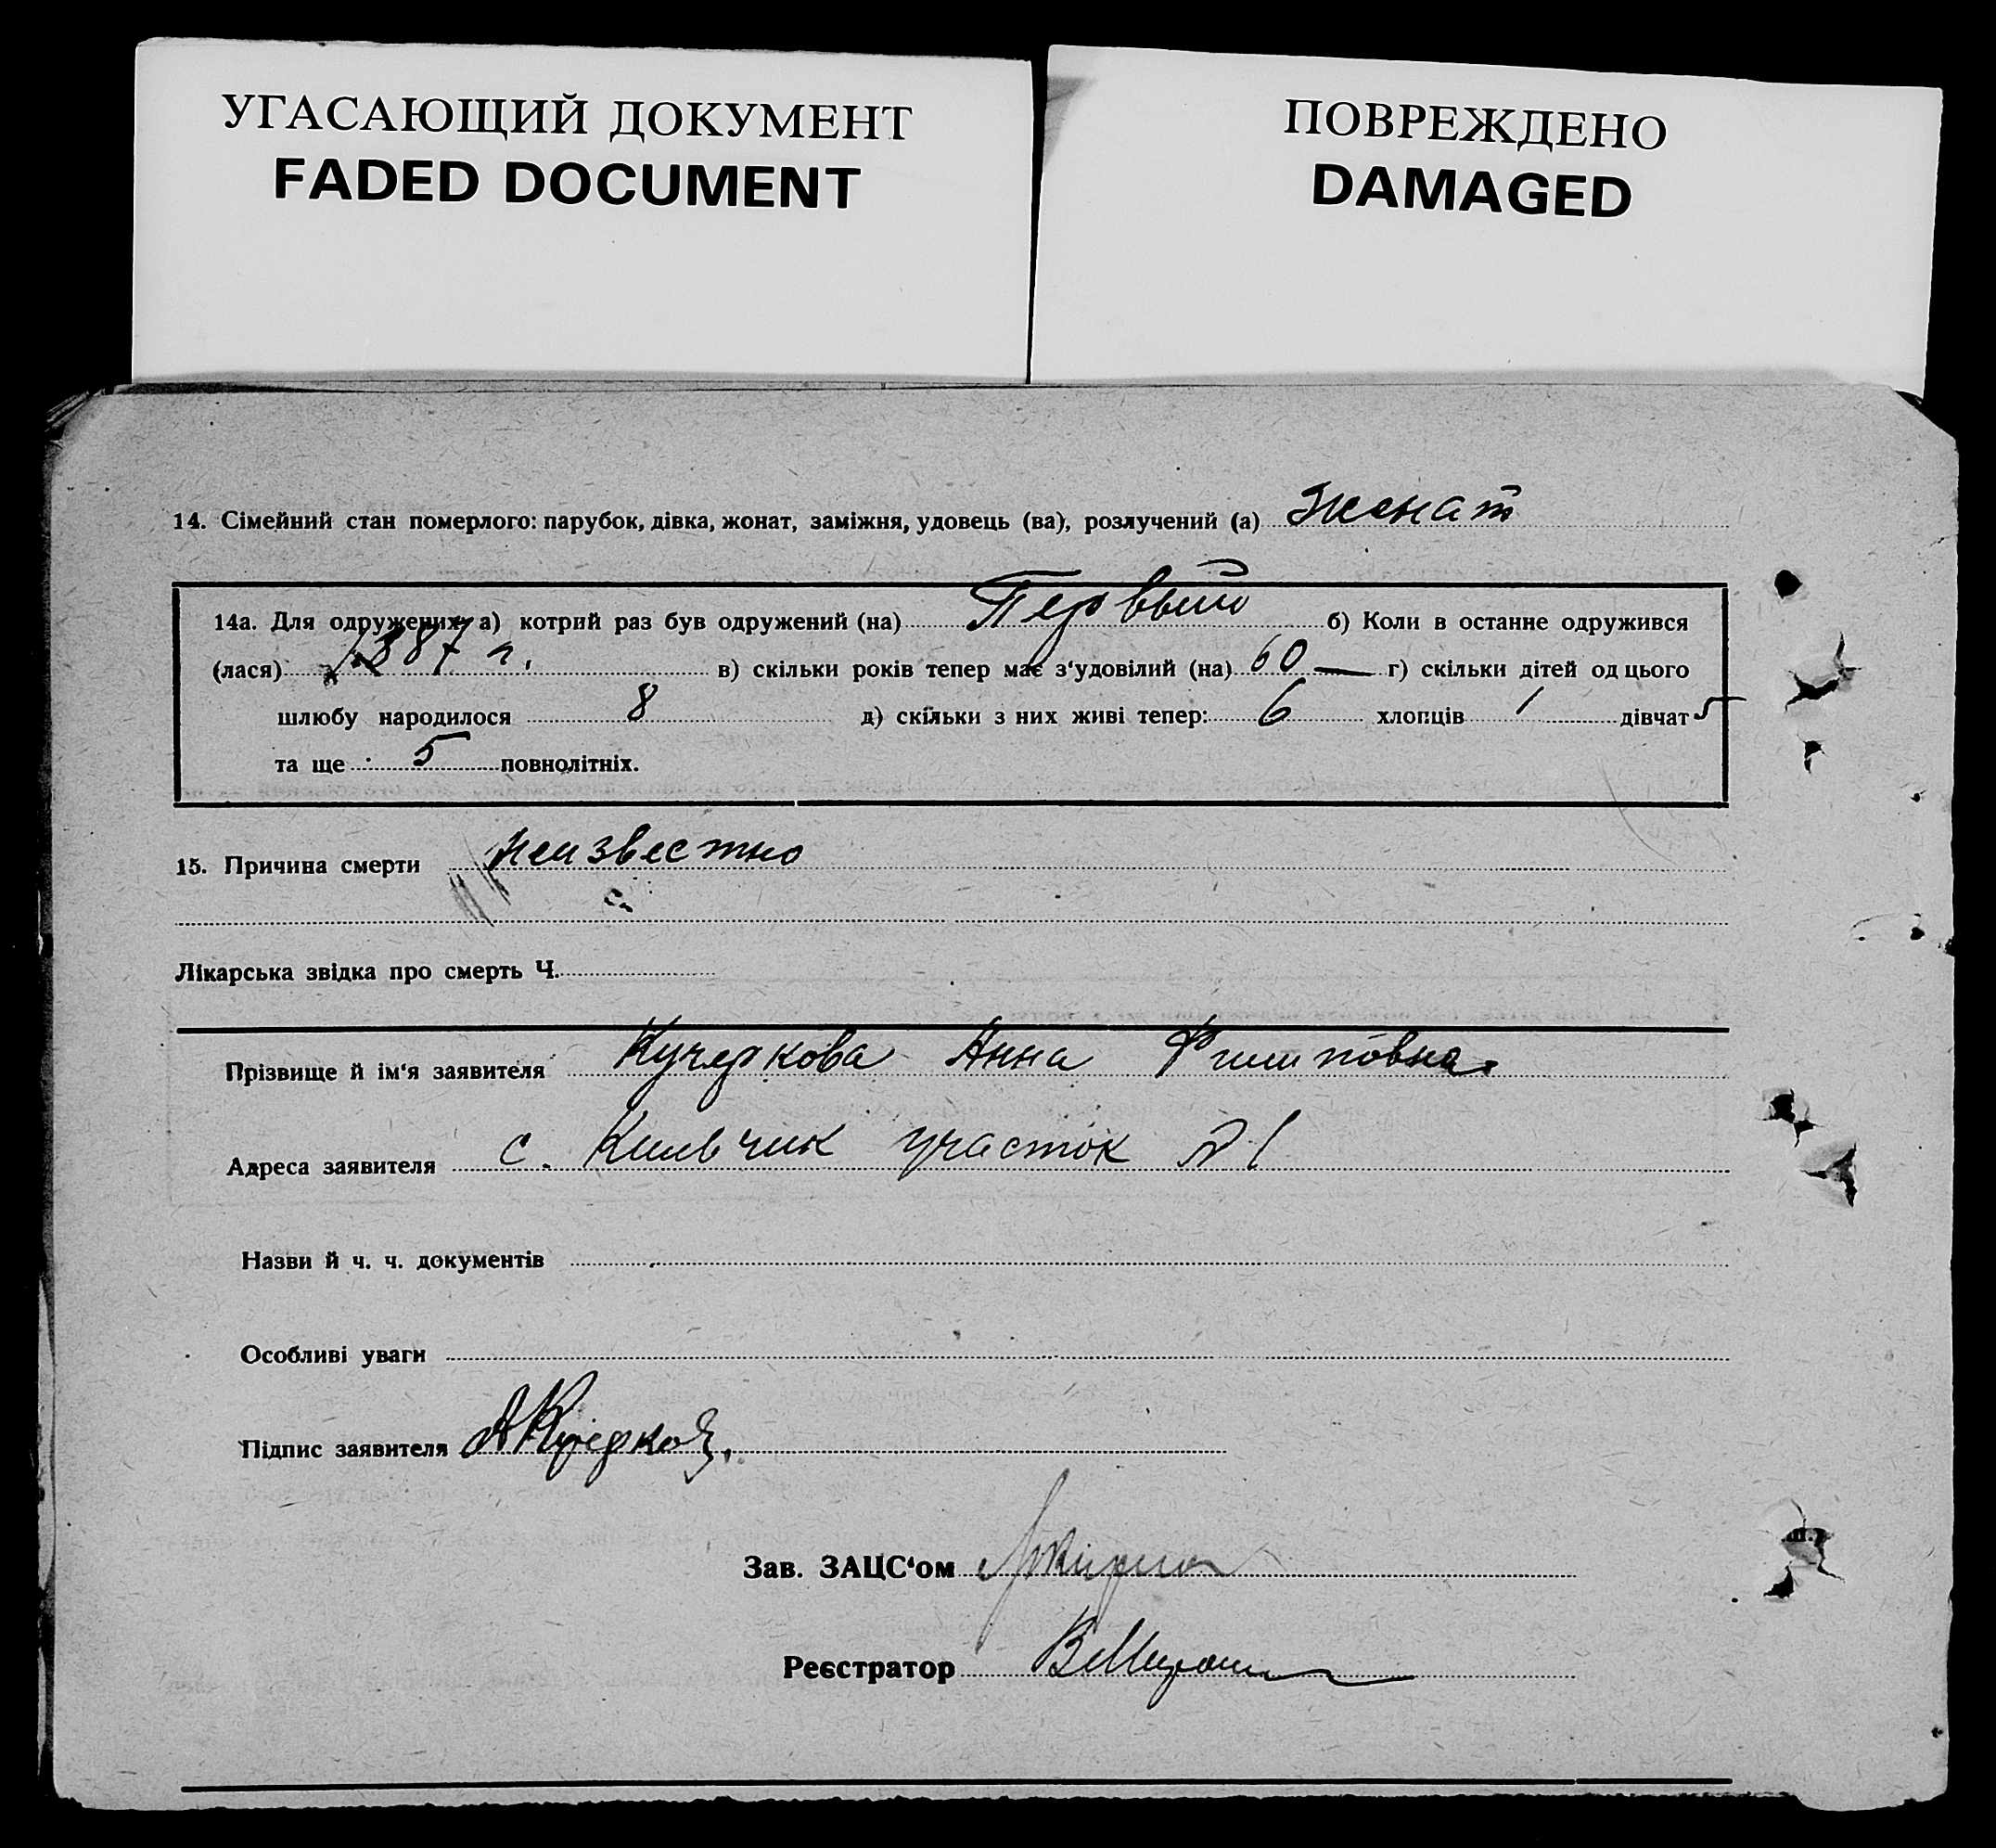 УГАСАЮЩИЙ ДОКУМЕНТ
FADED DOCUMENT
ПОВРЕЖДЕНО
DAMAGED
14. Сімейний стан померлого: парубок, дівка, жонат, заміжня, удовець (ва), розлучений (а) женат
14а. Для одружених: а) котрий раз був одружений (на) Первый б) Коли в останнє одружився
(лася) 1887 г. в) скільки років тепер має з‘удовілий (на) 60 — г) скільки дітей од цього
шлюбу народилося 8 д) скільки з них живі тепер: 6 хлопців 1 дівчат 5
та ще 5 повнолітніх.
15. Причина смерти неизвестно
Лікарська звідка про смерть Ч.
Прізвище й ім‘я заявителя Кучеркова Анна Филиповна.
Адреса заявителя с. Кильчик участок №1
Назви й ч. ч. документів
Особливі уваги
Підпис заявителя
Зав. ЗАЦС‘ом
Реєстратор